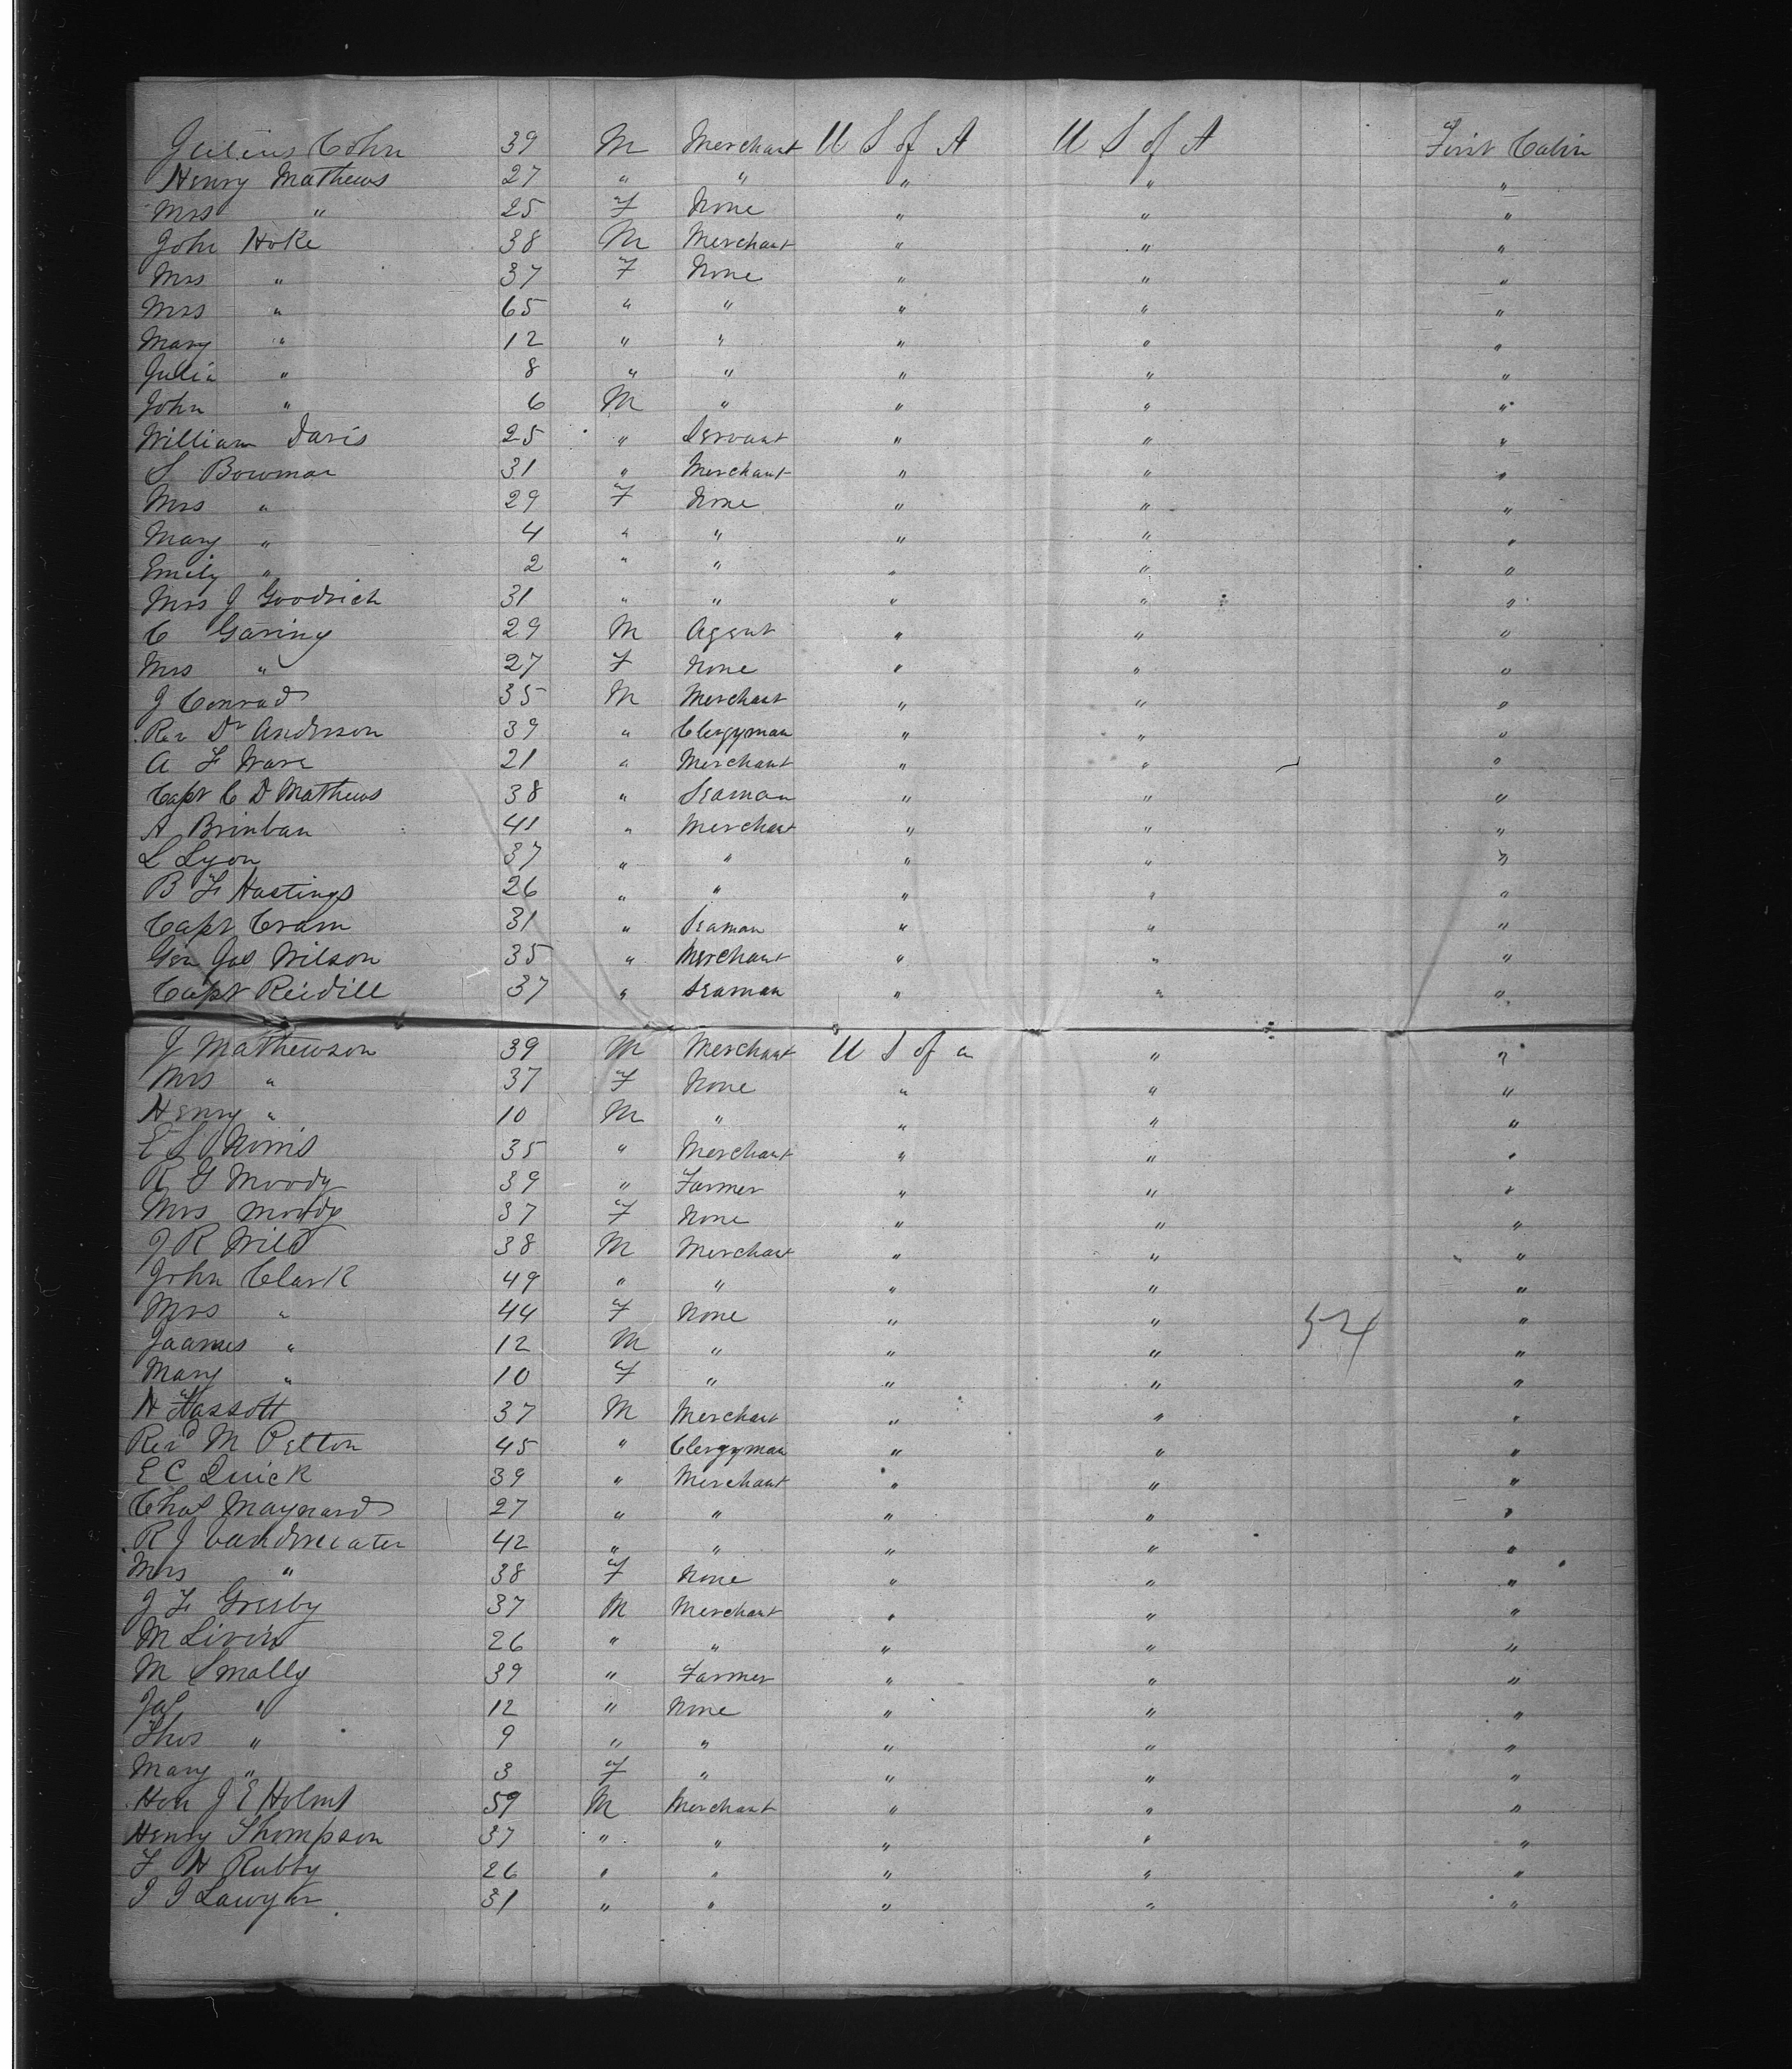 Julius Cohn 39 M Merchant U S of A U S of A First Cabin
Henry Mathews 27 " " " " "
Mrs " 25 F None " " "
John Hoke 38 M Merchant " " "
Mrs " 37 F None " " "
Mrs " 65 " " " " "
Mary " 12 " " " " "
Julia " 8 " " " " "
John " 6 M " " " "
William Davis 25 " Servant " " "
S Bowman 31 " Merchant " " "
Mrs " 29 F None " " "
Mary " 4 " " " " "
Emily " 2 " " " " "
Mrs J Goodrich 31 " " " " "
C Garing 29 M Agent " " "
Mrs " 27 F None " " "
J Conrad 35 M Merchant " " "
Rev Dr Anderson 39 " Clergyman " " "
A F Ware 21 " Merchant " " "
Capt C D Mathews 38 " Seaman " " "
A Brinban 41 " Merchant " " "
L Lyon 37 " " " " "
B F Hastings 26 " " " " "
Capt Cram 31 " Seaman " " "
Gen Jas Wilson 35 " Merchant " " "
Capt Reidill 37 " Seaman " " "
J Mathewson 39 M Merchant U S of a " "
Mrs " 37 F None " " "
Henry " 10 M " " " "
E S Norris 35 " Merchant " " "
R G Moody 39 " Farmer " " "
Mrs Moody 37 F None " " "
J R Wild 38 M Merchant " " "
John Clark 49 " " " " "
Mrs " 44 F None " " 54 "
Jaames " 12 M " " " "
Mary " 10 F " " " "
H Hassott 37 M Merchant " " "
Revd M Pelton 45 " Clergyman " " "
E C Quick 39 " Merchant " " "
Chas Maynard 27 " " " " "
R J Vanderwater 42 " " " " "
Mrs " 38 F None " " "
J F Gresby 37 M Merchant " " "
M 26 " " " " "
M Smally 39 " Farmer " " "
Jas " 12 " None " " "
Thos " 9 " " " " "
Mary " 3 F " " " "
Hon J E Holms 59 M Merchant " " "
Henry Thompson 37 " " " " "
F H Rubby 26 " " " " "
J J Lawyer 31 " " " " "